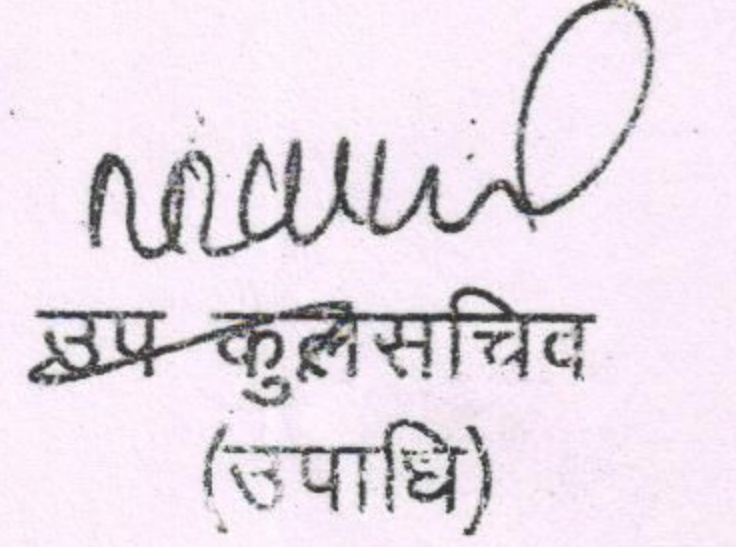 उप कुलसचिव
(उपाधि)